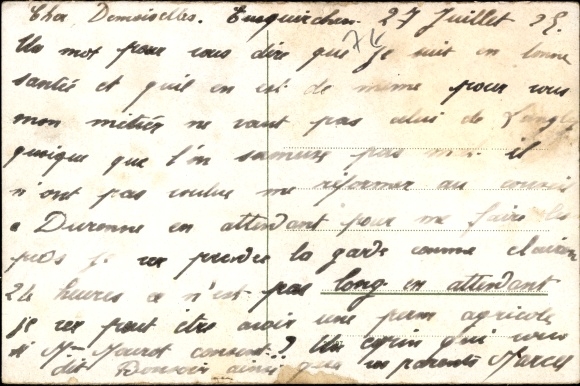 Cher Demoiselles. Eusquirchen 27 Juillet 25.
Un mot pour vous dire que je suit en bonne
santée et quil en est de meme pour vous
mon métier ne vaut pas celui de
quoique que l'on samuse pas mal il
n'ont pas voulue me réformer au conseil
a Durenne en attendant pour me faire les
pieds je vee prendre la garde comme clairon
24 heures ce n'est pas long en attendant
je vee peut etre avoir une perm agricole
si Mr Mourot consent? Un copin qui vous
dit Bonsoir ainsi qua vos parents Marcel